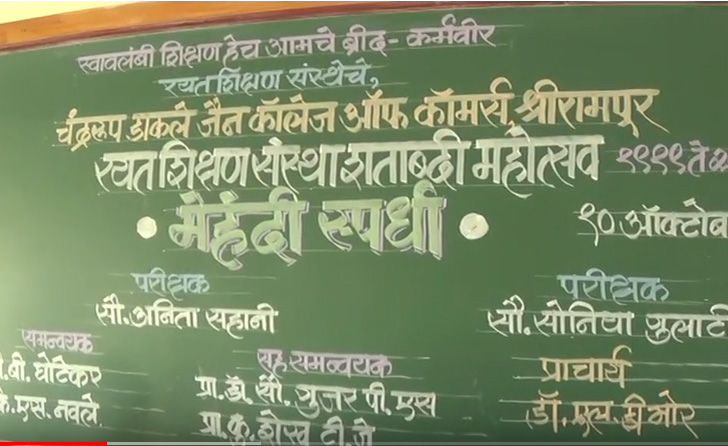 स्वावलंबी शिक्षण हेच आमचे ब्रीद - कर्मवीर
रयत शिक्षण संस्थेचे,
चंद्ररूप डाकले जैन कॉलेज ऑफ कॉमर्स, श्रीरामपूर
रयत शिक्षण संस्था शताब्दी महोत्सव १९१९ ते
• मेहंदी स्पर्धा •
१० ऑक्टोब
परीक्षक
परीक्षक
सौ. अनिता सहानी
सौ. सोनिया गुलाटी
समन्वयक
सह समन्वयक
प्राचार्य
.बी. घोटेकर
प्रा. डॉ. सौ. गुजर पी. एस
के. एस. नवले.
प्रा. कु. शेख टी. जे
डॉ. एल. डी. भोर